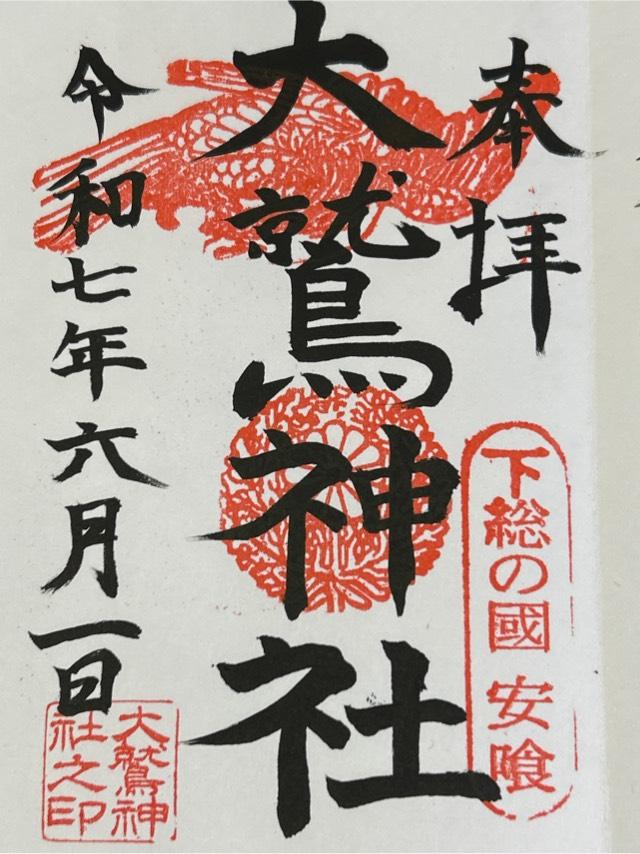 奉拝
下総の國 安喰
大鷲神社
令和七年六月一日
大鷲神
社之印